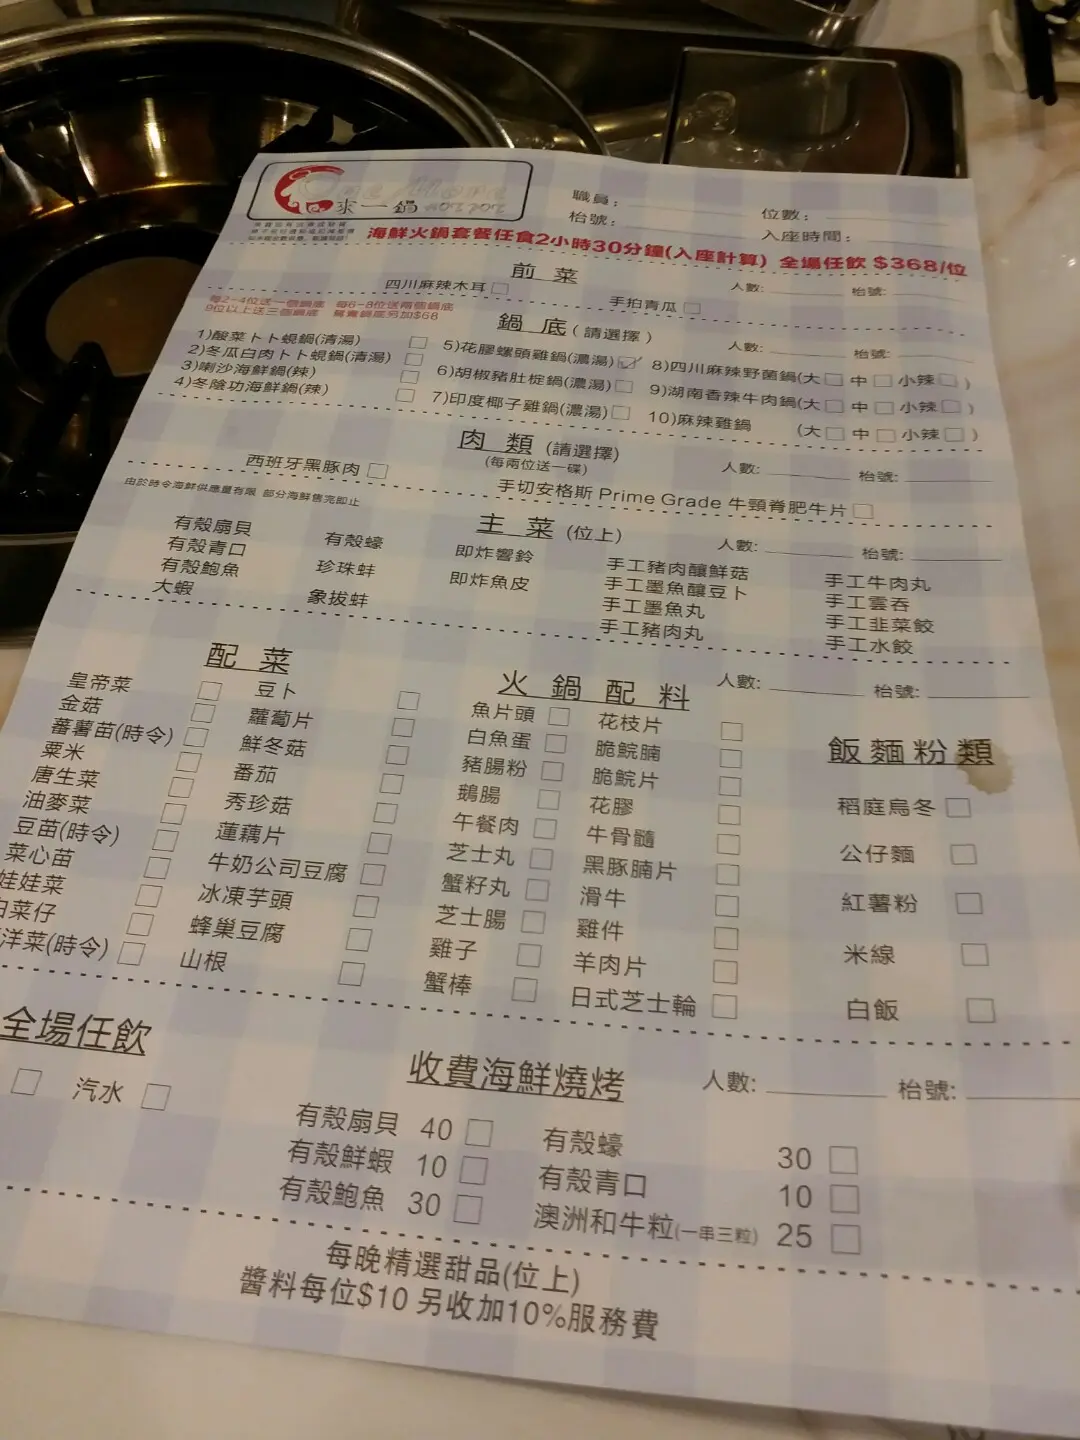 One More
來一鍋 HOT POT
職員:
位數:
枱號:
入座時間:
海鮮火鍋套餐任食2小時30分鐘(入座計算) 全場任飲 $368/位
前菜
人數: 枱號:
四川麻辣木耳 手拍青瓜
每2-4位送一個鍋底 每6-8位送兩個鍋底
9位以上送三個鍋底 鴛鴦鍋底另加$68
鍋底(請選擇)
人數: 枱號:
1)酸菜卜卜蜆鍋(清湯)
2)冬瓜白肉卜卜蜆鍋(清湯)
3)喇沙海鮮鍋(辣)
4)冬陰功海鮮鍋(辣)
5)花膠螺頭雞鍋(濃湯)
6)胡椒豬肚椗鍋(濃湯)
7)印度椰子雞鍋(濃湯)
8)四川麻辣野菌鍋(大 中 小辣)
9)湖南香辣牛肉鍋(大 中 小辣)
10)麻辣雞鍋 (大 中 小辣)
肉類 (請選擇)
(每兩位送一碟)
人數: 枱號:
西班牙黑豚肉
手切安格斯 Prime Grade 牛頸脊肥牛片
由於時令海鮮供應量有限 部分海鮮售完即止
主菜 (位上)
人數: 枱號:
有殼扇貝
有殼青口
有殼鮑魚
大蝦
有殼蠔
珍珠蚌
象拔蚌
即炸響鈴
即炸魚皮
手工豬肉釀鮮菇
手工墨魚釀豆卜
手工墨魚丸
手工豬肉丸
手工牛肉丸
手工雲吞
手工韭菜餃
手工水餃
配菜
皇帝菜
金菇
蕃薯苗(時令)
粟米
唐生菜
油麥菜
豆苗(時令)
菜心苗
娃娃菜
白菜仔
洋菜(時令)
豆卜
蘿蔔片
鮮冬菇
番茄
秀珍菇
蓮藕片
牛奶公司豆腐
冰凍芋頭
蜂巢豆腐
山根
火鍋配料
人數: 枱號:
魚片頭
白魚蛋
豬腸粉
鵝腸
午餐肉
芝士丸
蟹籽丸
芝士腸
雞子
蟹棒
花枝片
脆鯇腩
脆鯇片
花膠
牛骨髓
黑豚腩片
滑牛
雞件
羊肉片
日式芝士輪
飯麵粉類
稻庭烏冬
公仔麵
紅薯粉
米線
白飯
全場任飲
汽水
收費海鮮燒烤
人數: 枱號:
有殼扇貝 40
有殼鮮蝦 10
有殼鮑魚 30
有殼蠔 30
有殼青口 10
澳洲和牛粒(一串三粒) 25
每晚精選甜品(位上)
醬料每位$10 另收加10%服務費